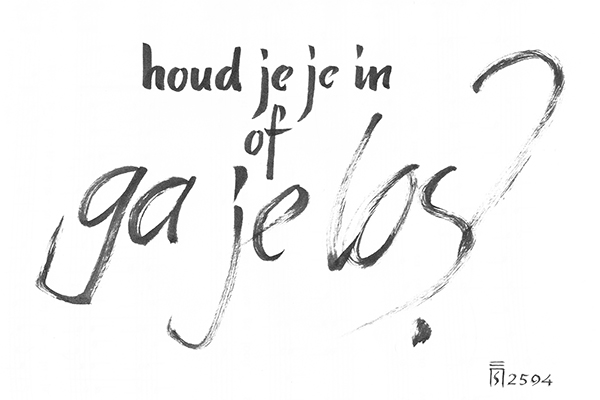 houd je je in
of
ga je los?
2594